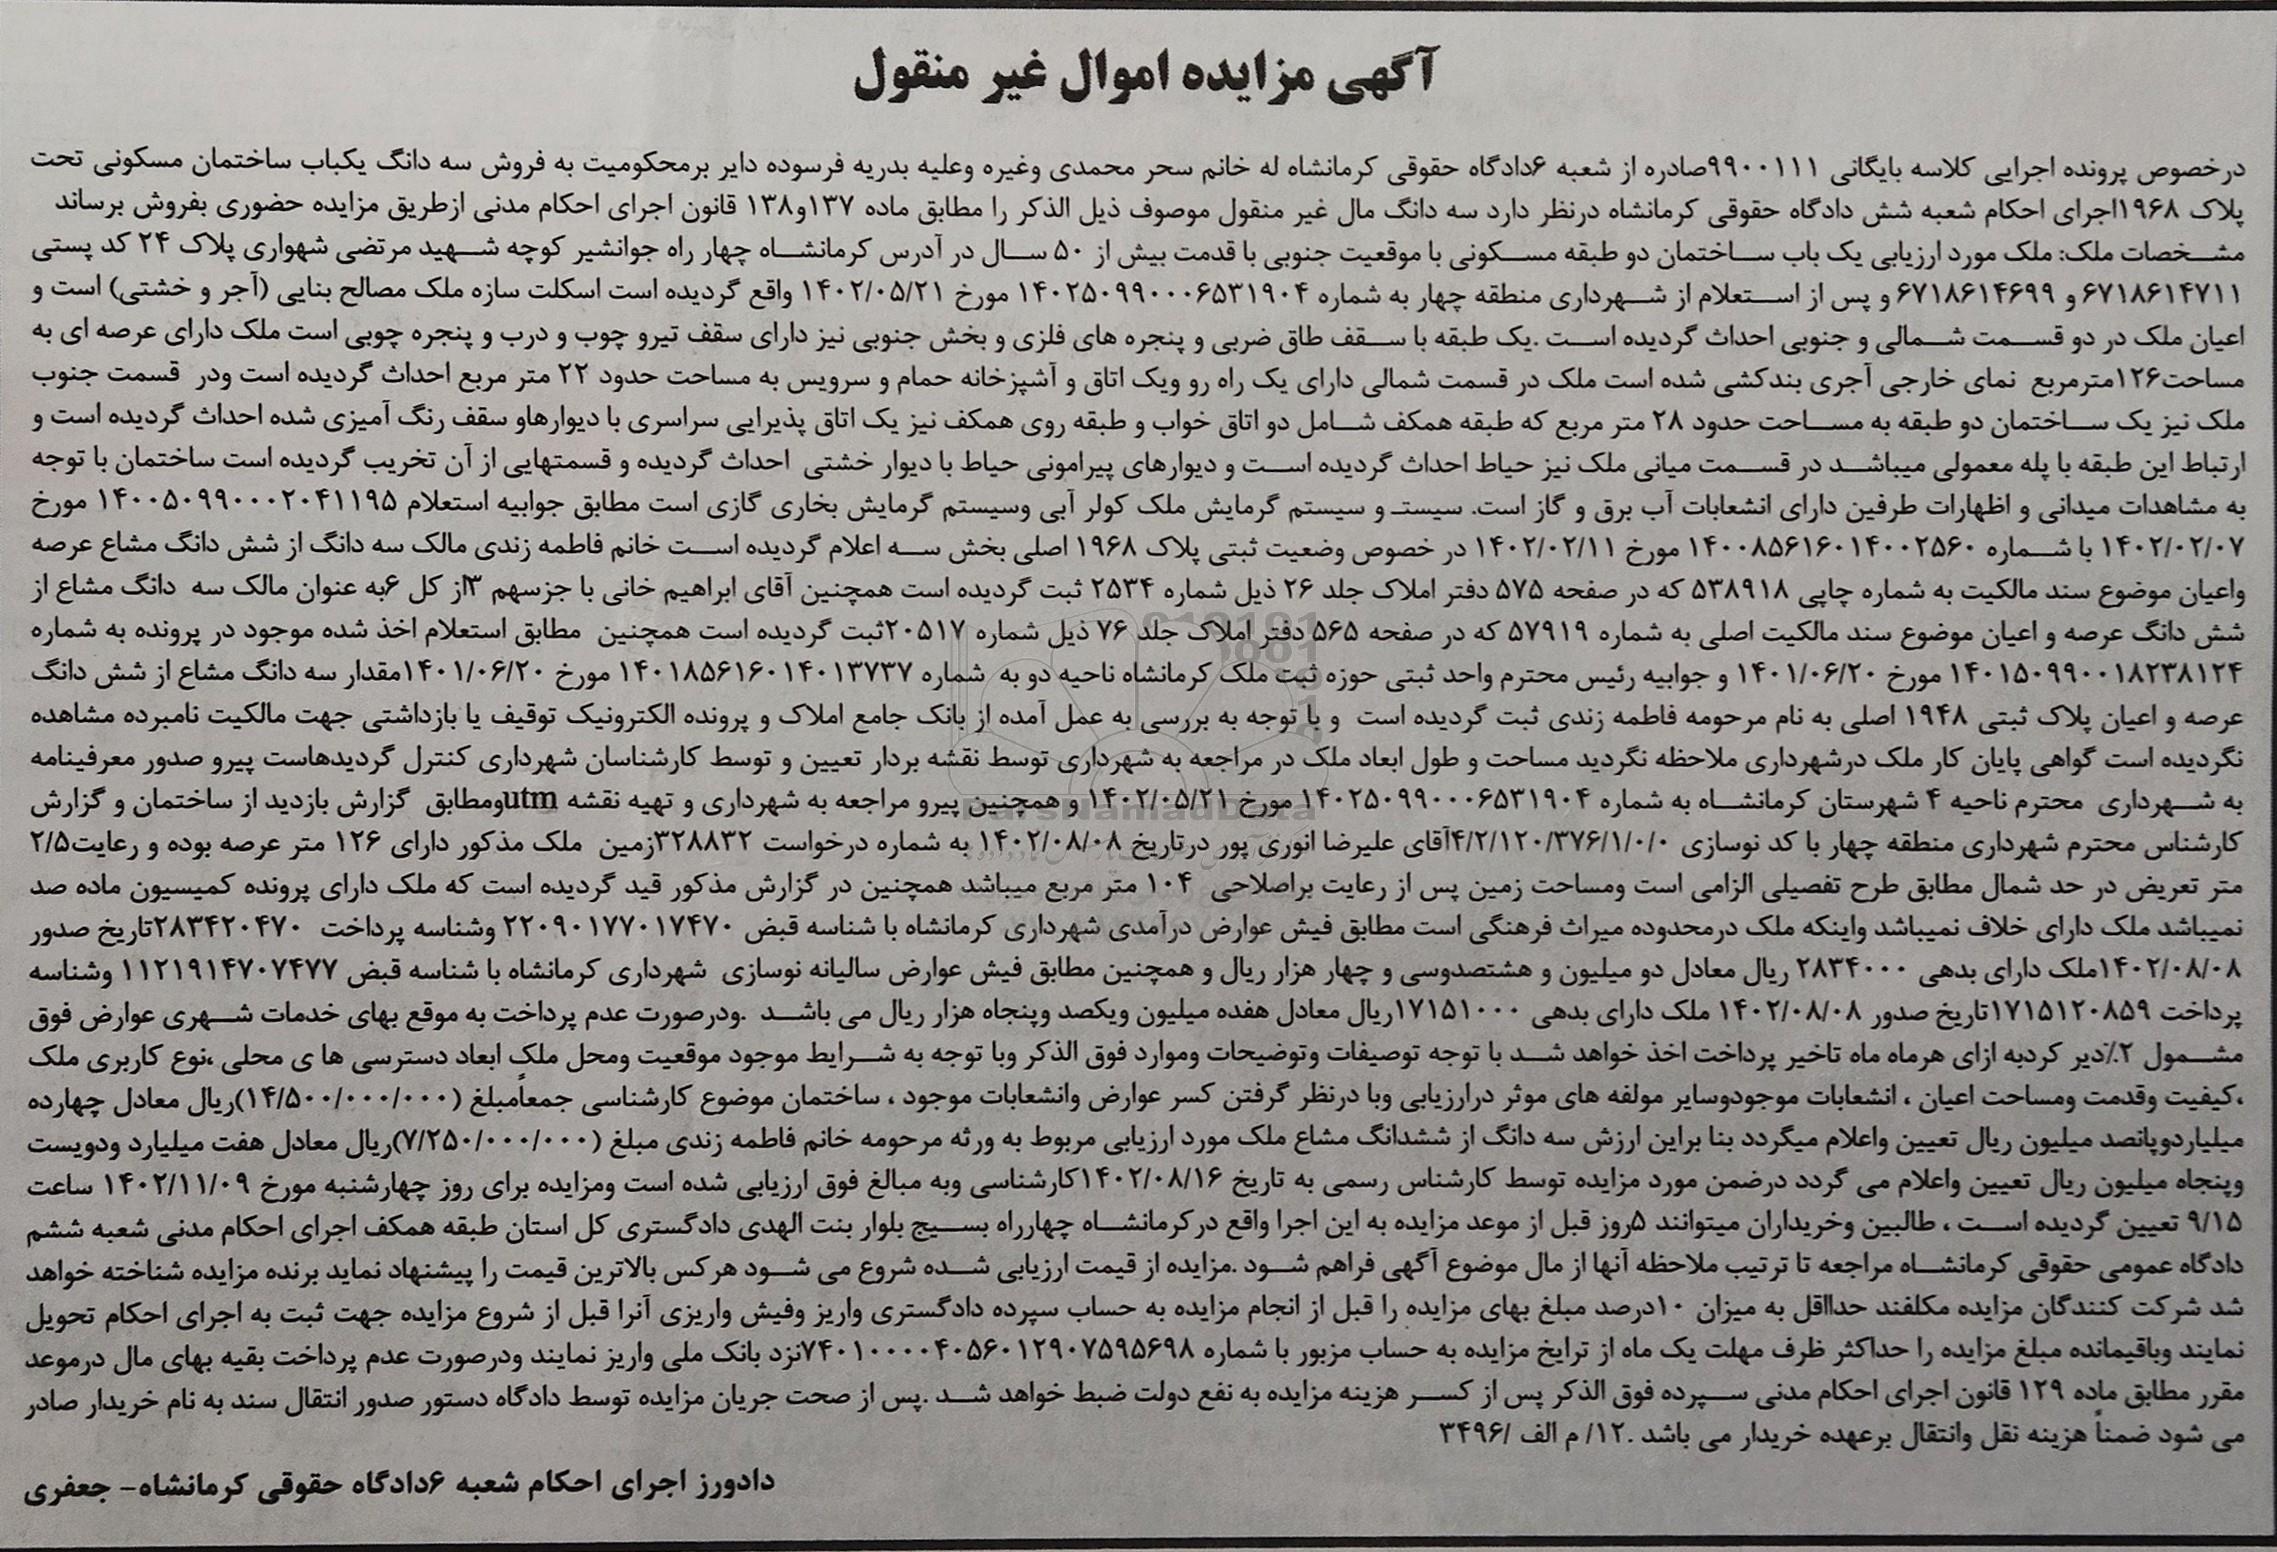 آگهی مزایده اموال غیر منقول
درخصوص پرونده اجرایی کلاسه بایگانی ۹۹۰۰۱۱۱صادره از شعبه ۶دادگاه حقوقی کرمانشاه له خانم سحر محمدی وغیره وعلیه بدریه فرسوده دایر برمحکومیت به فروش سه دانگ یکباب ساختمان مسکونی تحت
پلاک ۱۹۶۸اجرای احکام شعبه شش دادگاه حقوقی کرمانشاه درنظر دارد سه دانگ مال غیر منقول موصوف ذیل الذکر را مطابق ماده ۱۳۷و۱۳۸ قانون اجرای احکام مدنی ازطریق مزایده حضوری بفروش برساند
مشخصات ملک: ملک مورد ارزیابی یک باب ساختمان دو طبقه مسکونی با موقعیت جنوبی با قدمت بیش از ۵۰ سال در آدرس کرمانشاه چهار راه جوانشیر کوچه شهید مرتضی شهواری پلاک ۲۴ کد پستی
۶۷۱۸۶۱۴۷۱۱ و ۶۷۱۸۶۱۴۶۹۹ و پس از استعلام از شهرداری منطقه چهار به شماره ۱۴۰۲۵۰۹۹۰۰۰۶۵۳۱۹۰۴ مورخ ۱۴۰۲/۰۵/۲۱ واقع گردیده است اسکلت سازه ملک مصالح بنایی (آجر و خشتی) است و
اعیان ملک در دو قسمت شمالی و جنوبی احداث گردیده است .یک طبقه با سقف طاق ضربی و پنجره های فلزی و بخش جنوبی نیز دارای سقف تیرو چوب و درب و پنجره چوبی است ملک دارای عرصه ای به
مساحت۱۲۶مترمربع نمای خارجی آجری بندکشی شده است ملک در قسمت شمالی دارای یک راه رو ویک اتاق و آشپزخانه حمام و سرویس به مساحت حدود ۲۲ متر مربع احداث گردیده است ودر قسمت جنوب
ملک نیز یک ساختمان دو طبقه به مساحت حدود ۲۸ متر مربع که طبقه همکف شامل دو اتاق خواب و طبقه روی همکف نیز یک اتاق پذیرایی سراسری با دیوارهاو سقف رنگ آمیزی شده احداث گردیده است و
ارتباط این طبقه با پله معمولی میباشد در قسمت میانی ملک نیز حیاط احداث گردیده است و دیوارهای پیرامونی حیاط با دیوار خشتی احداث گردیده و قسمتهایی از آن تخریب گردیده است ساختمان با توجه
به مشاهدات میدانی و اظهارات طرفین دارای انشعابات آب برق و گاز است. سیستـ و سیستم گرمایش ملک کولر آبی وسیستم گرمایش بخاری گازی است مطابق جوابیه استعلام ۱۴۰۰۵۰۹۹۰۰۰۲۰۴۱۱۹۵ مورخ
۱۴۰۲/۰۲/۰۷ با شماره ۱۴۰۰۸۵۶۱۶۰۱۴۰۰۲۵۶۰ مورخ ۱۴۰۲/۰۲/۱۱ در خصوص وضعیت ثبتی پلاک ۱۹۶۸ اصلی بخش سه اعلام گردیده است خانم فاطمه زندی مالک سه دانگ از شش دانگ مشاع عرصه
واعیان موضوع سند مالکیت به شماره چاپی ۵۳۸۹۱۸ که در صفحه ۵۷۵ دفتر املاک جلد ۲۶ ذیل شماره ۲۵۳۴ ثبت گردیده است همچنین آقای ابراهیم خانی با جزسهم ۳از کل ۶به عنوان مالک سه دانگ مشاع از
شش دانگ عرصه و اعیان موضوع سند مالکیت اصلی به شماره ۵۷۹۱۹ که در صفحه ۵۶۵ دفتر املاک جلد ۷۶ ذیل شماره ۲۰۵۱۷ثبت گردیده است همچنین مطابق استعلام اخذ شده موجود در پرونده به شماره
۱۴۰۱۵۰۹۹۰۰۱۸۲۳۸۱۲۴ مورخ ۱۴۰۱/۰۶/۲۰ و جوابیه رئیس محترم واحد ثبتی حوزه ثبت ملک کرمانشاه ناحیه دو به شماره ۱۴۰۱۸۵۶۱۶۰۱۴۰۱۳۷۳۷ مورخ ۱۴۰۱/۰۶/۲۰مقدار سه دانگ مشاع از شش دانگ
عرصه و اعیان پلاک ثبتی ۱۹۴۸ اصلی به نام مرحومه فاطمه زندی ثبت گردیده است و با توجه به بررسی به عمل آمده از بانک جامع املاک و پرونده الکترونیک توقیف یا بازداشتی جهت مالکیت نامبرده مشاهده
نگردیده است گواهی پایان کار ملک درشهرداری ملاحظه نگردید مساحت و طول ابعاد ملک در مراجعه به شهرداری توسط نقشه بردار تعیین و توسط کارشناسان شهرداری کنترل گردیدهاست پیرو صدور معرفینامه
به شهرداری محترم ناحیه ۴ شهرستان کرمانشاه به شماره ۱۴۰۲۵۰۹۹۰۰۰۶۵۳۱۹۰۴ مورخ ۱۴۰۲/۰۵/۲۱ و همچنین پیرو مراجعه به شهرداری و تهیه نقشه utmومطابق گزارش بازدید از ساختمان و گزارش
کارشناس محترم شهرداری منطقه چهار با کد نوسازی ۴/۲/۱۲۰/۳۷۶/۱/۰/۰آقای علیرضا انوری پور درتاریخ ۱۴۰۲/۰۸/۰۸ به شماره درخواست ۳۲۸۸۳۲زمین ملک مذکور دارای ۱۲۶ متر عرصه بوده و رعایت۲/۵
متر تعریض در حد شمال مطابق طرح تفصیلی الزامی است ومساحت زمین پس از رعایت براصلاحی ۱۰۴ متر مربع میباشد همچنین در گزارش مذکور قید گردیده است که ملک دارای پرونده کمیسیون ماده صد
نمیباشد ملک دارای خلاف نمیباشد واینکه ملک درمحدوده میراث فرهنگی است مطابق فیش عوارض درآمدی شهرداری کرمانشاه با شناسه قبض ۲۲۰۹۰۱۷۷۰۱۷۴۷۰ وشناسه پرداخت ۲۸۳۴۲۰۴۷۰تاریخ صدور
۱۴۰۲/۰۸/۰۸ملک دارای بدهی ۲۸۳۴۰۰۰ ریال معادل دو میلیون و هشتصدوسی و چهار هزار ریال و همچنین مطابق فیش عوارض سالیانه نوسازی شهرداری کرمانشاه با شناسه قبض ۱۱۲۱۹۱۴۷۰۷۴۷۷ وشناسه
پرداخت ۱۷۱۵۱۲۰۸۵۹تاریخ صدور ۱۴۰۲/۰۸/۰۸ ملک دارای بدهی ۱۷۱۵۱۰۰۰ریال معادل هفده میلیون ویکصد وپنجاه هزار ریال می باشد .ودرصورت عدم پرداخت به موقع بهای خدمات شهری عوارض فوق
مشمول ۲٪دیر کردبه ازای هرماه ماه تاخیر پرداخت اخذ خواهد شد با توجه توصیفات وتوضیحات وموارد فوق الذکر وبا توجه به شرایط موجود موقعیت ومحل ملک ابعاد دسترسی ها ی محلی ،نوع کاربری ملک
،کیفیت وقدمت ومساحت اعیان ، انشعابات موجودوسایر مولفه های موثر درارزیابی وبا درنظر گرفتن کسر عوارض وانشعابات موجود ، ساختمان موضوع کارشناسی جمعاًمبلغ (۱۴/۵۰۰/۰۰۰/۰۰۰)ریال معادل چهارده
میلیاردوپانصد میلیون ریال تعیین واعلام میگردد بنا براین ارزش سه دانگ از ششدانگ مشاع ملک مورد ارزیابی مربوط به ورثه مرحومه خانم فاطمه زندی مبلغ (۷/۲۵۰/۰۰۰/۰۰۰)ریال معادل هفت میلیارد ودویست
وپنجاه میلیون ریال تعیین واعلام می گردد درضمن مورد مزایده توسط کارشناس رسمی به تاریخ ۱۴۰۲/۰۸/۱۶کارشناسی وبه مبالغ فوق ارزیابی شده است ومزایده برای روز چهارشنبه مورخ ۱۴۰۲/۱۱/۰۹ ساعت
۹/۱۵ تعیین گردیده است ، طالبین وخریداران میتوانند ۵روز قبل از موعد مزایده به این اجرا واقع درکرمانشاه چهارراه بسیج بلوار بنت الهدی دادگستری کل استان طبقه همکف اجرای احکام مدنی شعبه ششم
دادگاه عمومی حقوقی کرمانشاه مراجعه تا ترتیب ملاحظه آنها از مال موضوع آگهی فراهم شود .مزایده از قیمت ارزیابی شده شروع می شود هرکس بالاترین قیمت را پیشنهاد نماید برنده مزایده شناخته خواهد
شد شرکت کنندگان مزایده مکلفند حدااقل به میزان ۱۰درصد مبلغ بهای مزایده را قبل از انجام مزایده به حساب سپرده دادگستری واریز وفیش واریزی آنرا قبل از شروع مزایده جهت ثبت به اجرای احکام تحویل
نمایند وباقیمانده مبلغ مزایده را حداکثر ظرف مهلت یک ماه از ترایخ مزایده به حساب مزبور با شماره ۷۴۰۱۰۰۰۰۴۰۵۶۰۱۲۹۰۷۵۹۵۶۹۸نزد بانک ملی واریز نمایند ودرصورت عدم پرداخت بقیه بهای مال درموعد
مقرر مطابق ماده ۱۲۹ قانون اجرای احکام مدنی سپرده فوق الذکر پس از کسر هزینه مزایده به نفع دولت ضبط خواهد شد .پس از صحت جریان مزایده توسط دادگاه دستور صدور انتقال سند به نام خریدار صادر
می شود ضمناً هزینه نقل وانتقال برعهده خریدار می باشد .۱۲/ م الف /۳۴۹۶
دادورز اجرای احکام شعبه ۶دادگاه حقوقی کرمانشاه– جعفری
ParsNamadData